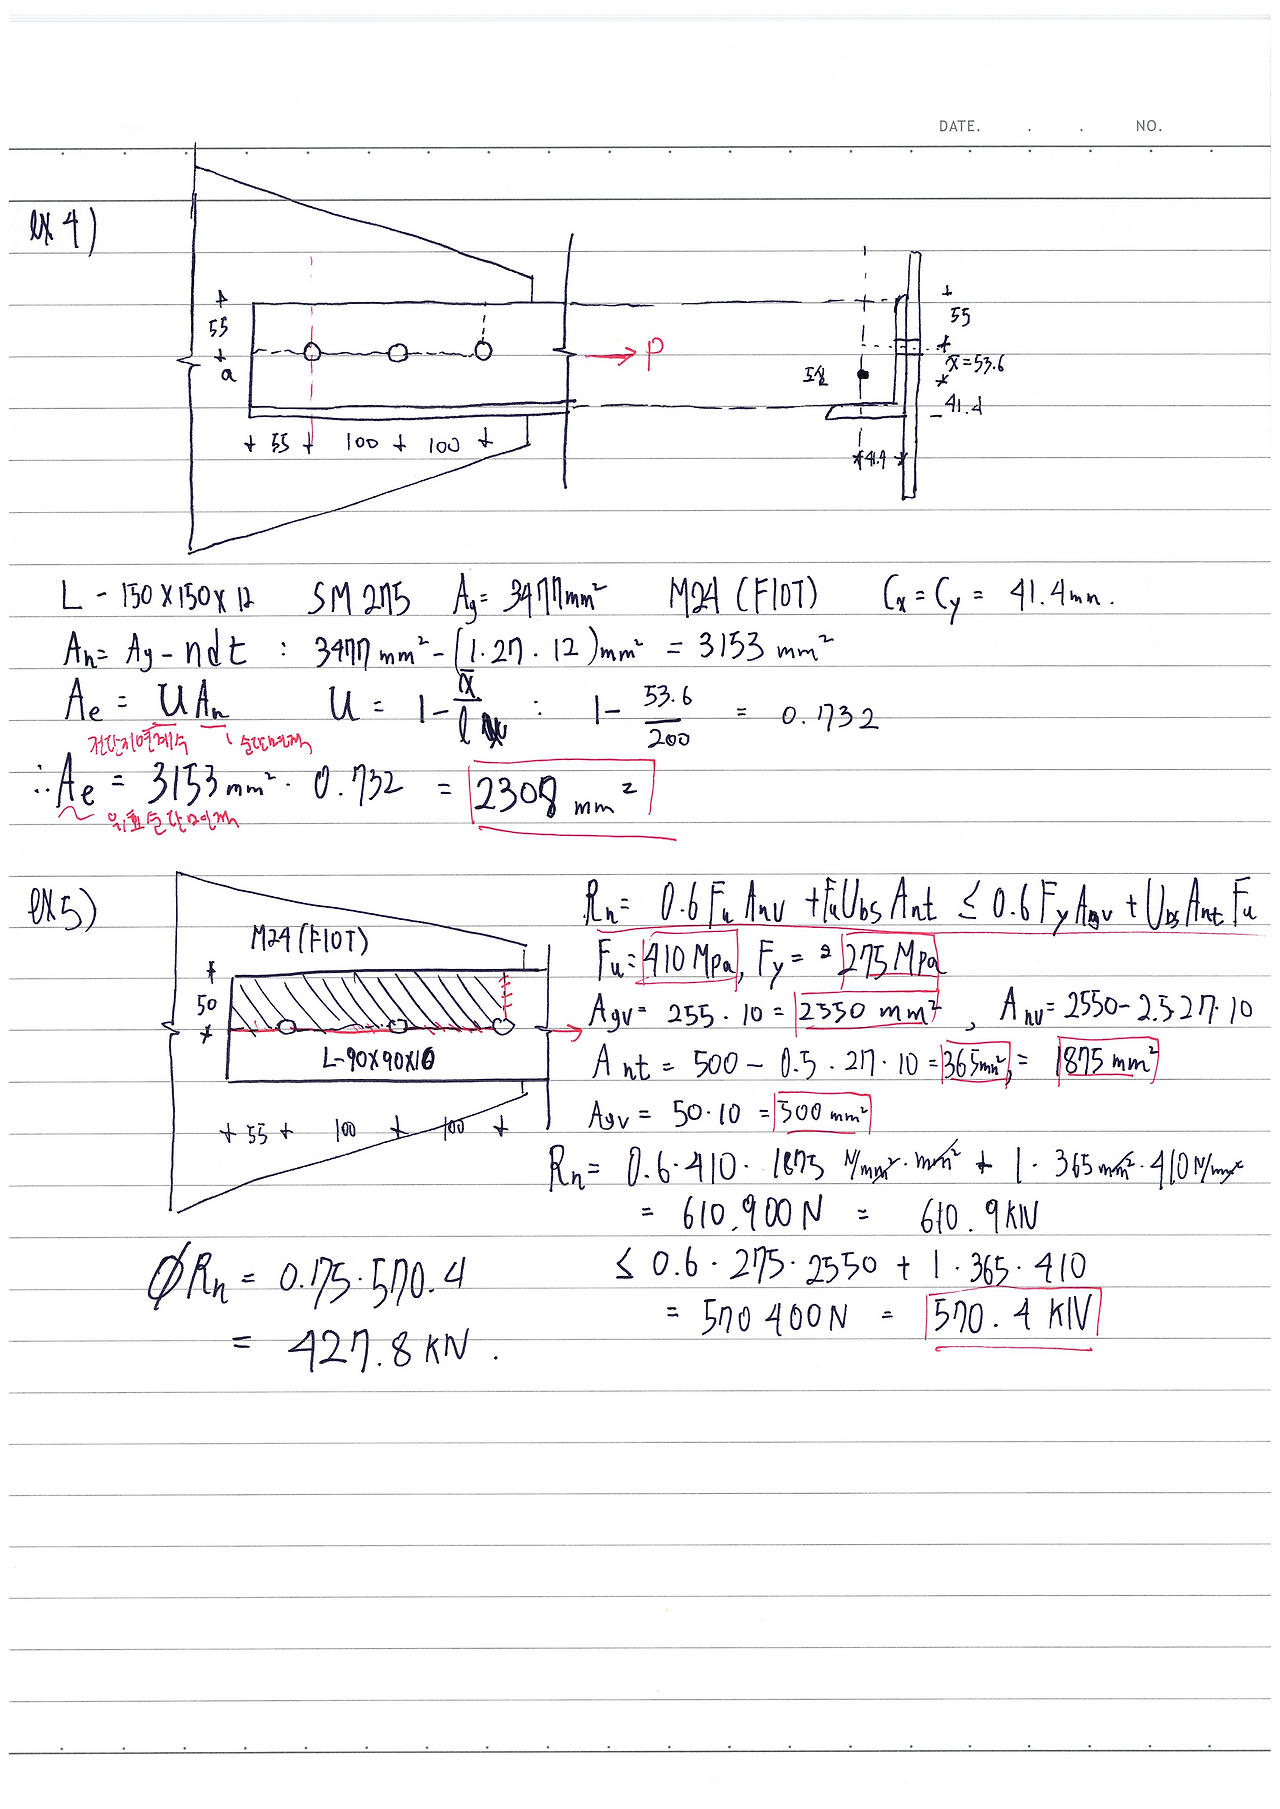 DATE. . . NO.
ex 4)
55
a
55 100 100
P
도심
55
x̄=53.6
41.4
41.4
L - 150×150×12 SM 275 Ag= 3477mm² M24 (F10T) Cx = Cy = 41.4mm.
An= Ag - ndt : 3477 mm² - (1·27·12)mm² = 3153 mm²
Ae = UAn U = 1 - x̄/l : 1 - 53.6/200 = 0.732
전단지연계수 순단면적
∴Ae = 3153mm² · 0.732 = 2308 mm²
유효순단면적
ex5)
M24 (F10T)
50
L-90×90×10
55 100 100
Rn= 0.6 Fu Anv + Fu Ubs Ant ≤ 0.6 Fy Agv + Ubs Ant Fu
Fu= 410 MPa, Fy = 275 MPa
Agv= 255·10 = 2550 mm², Anv = 2550 - 2.5·27·10
Ant = 500 - 0.5·27·10 = 365mm², = 1875 mm²
Agv = 50·10 = 500 mm²
Rn= 0.6·410·1875 N/mm²·mm² + 1·365mm²·410N/mm²
= 610,900N = 610.9kN
≤ 0.6·275·2550 + 1·365·410
= 570 400N = 570.4 KN
ØRn = 0.75·570.4
= 427.8 KN.